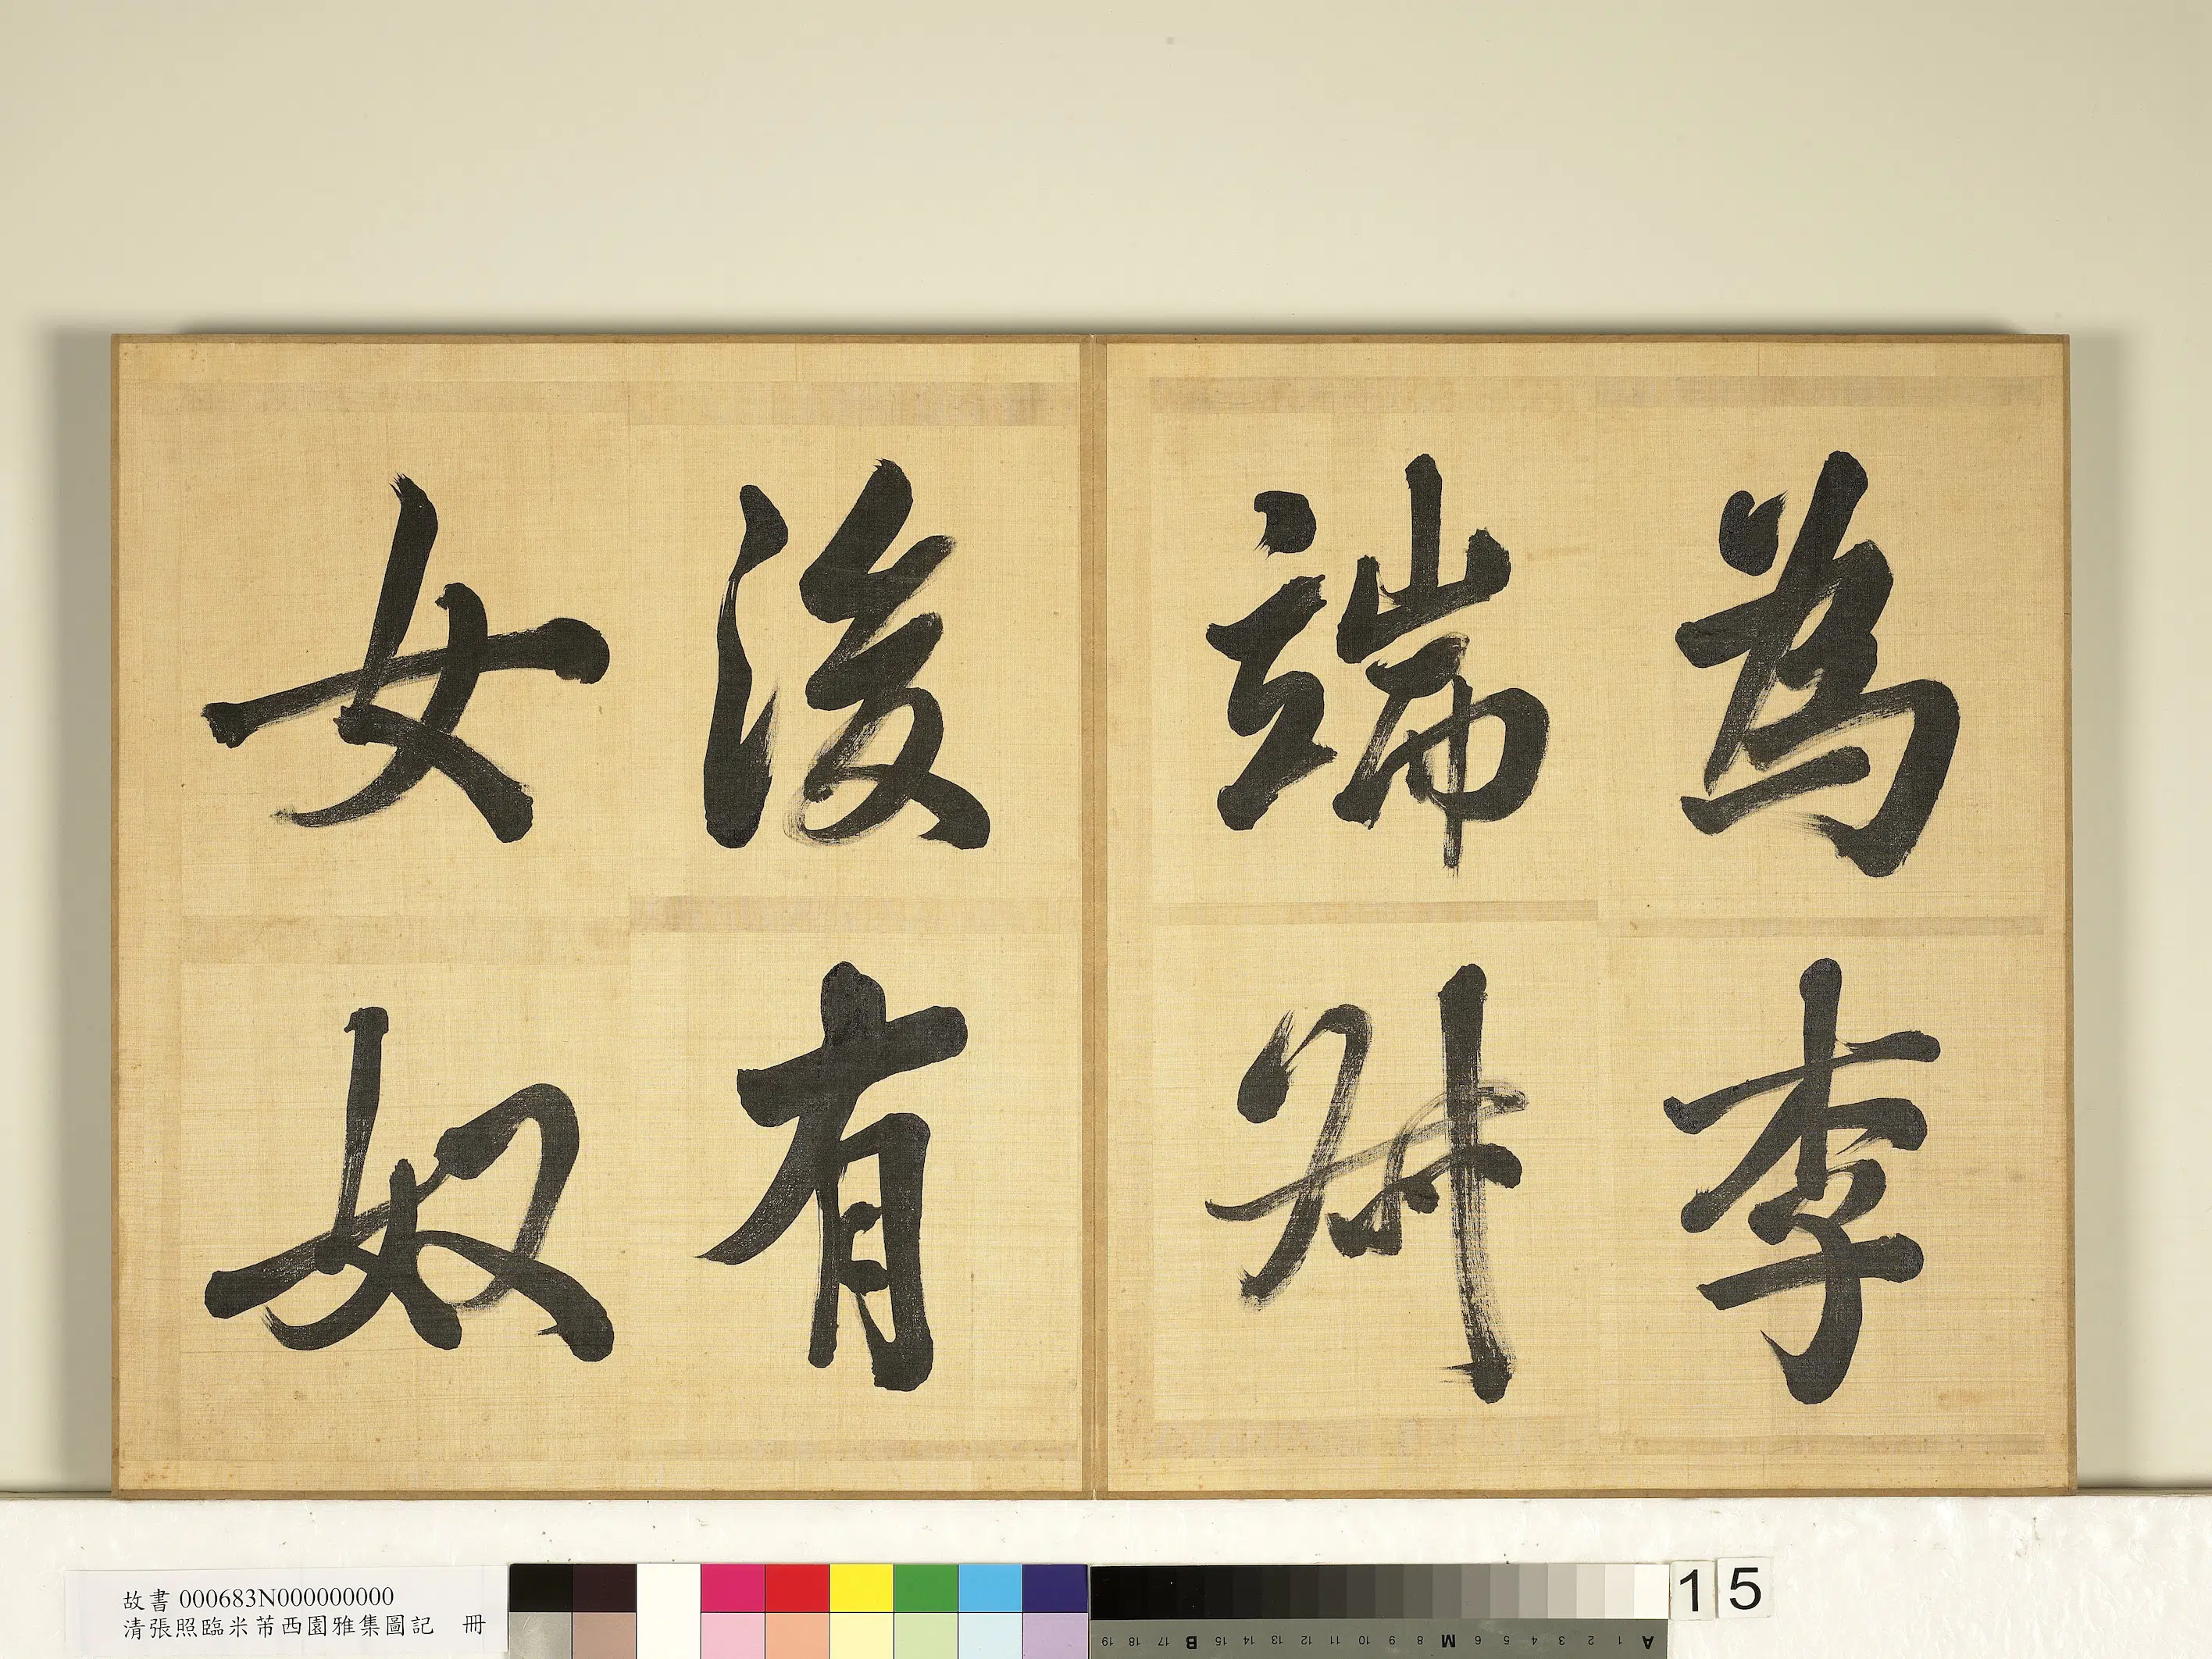 為李
端叔
後有
女奴
故書 000683N000000000
清張照臨米芾西園雅集圖記 冊
A 1 2 3 4 5 6 M 8 9 10 11 12 13 14 15 B 17 18 19
15